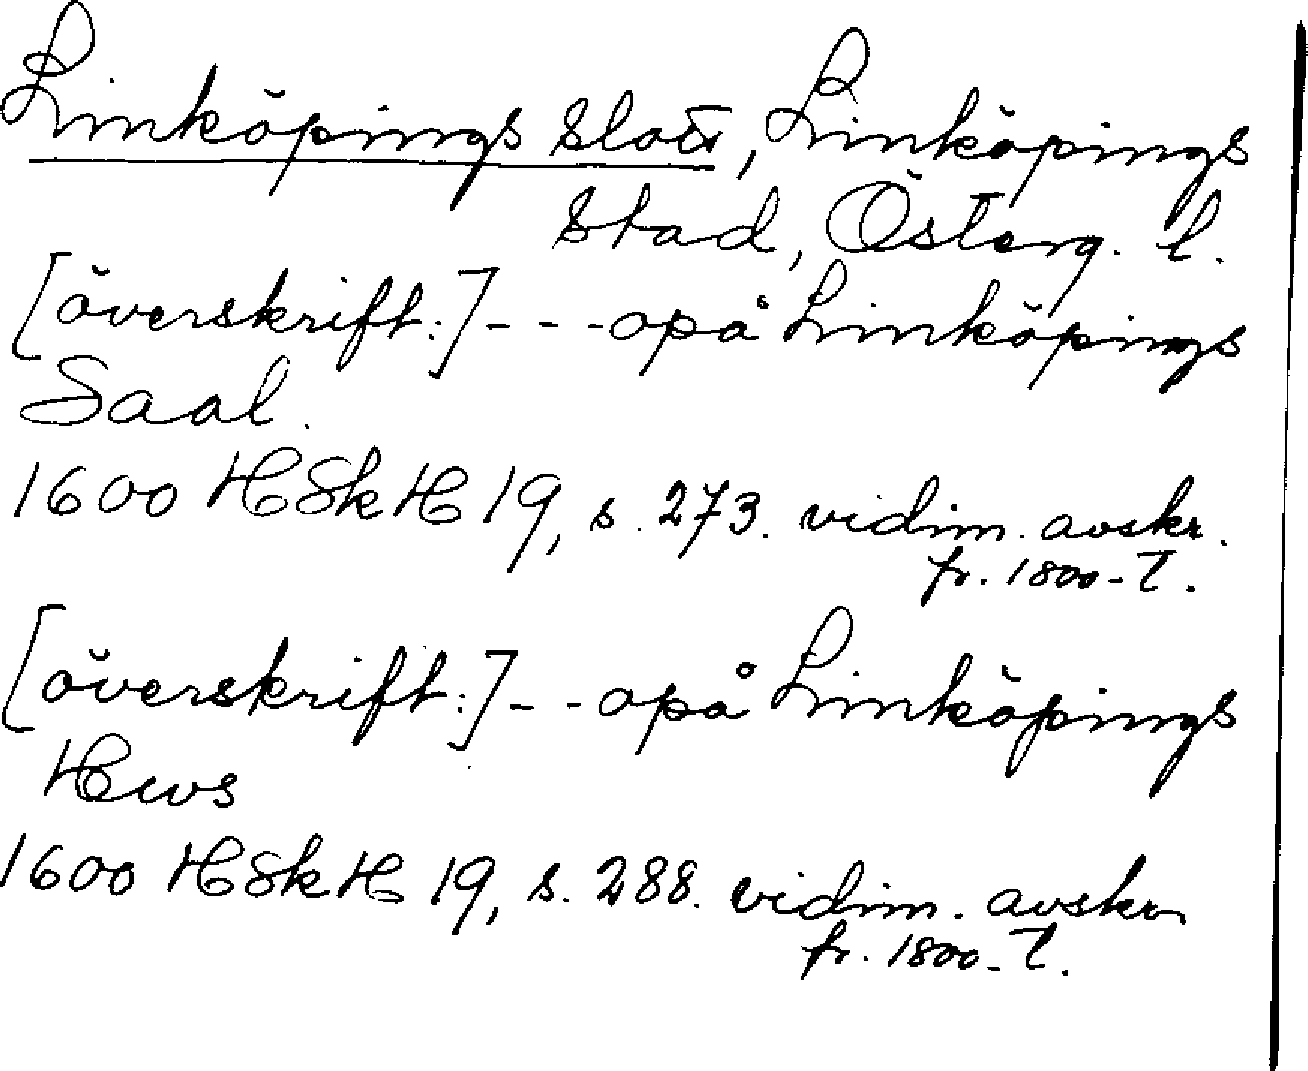 Linköpings slott, Linköpings
stad, Österg. l.
[överskrift:] - - - opå Linköpings
Saal.
1600 HSkH 19, s. 273. vidim. avskr.
fr. 1800-t.
[överskrift:] - - opå Linköpings
Hws
1600 HSkH 19, s. 288. vidim. avskr.
fr. 1800-t.